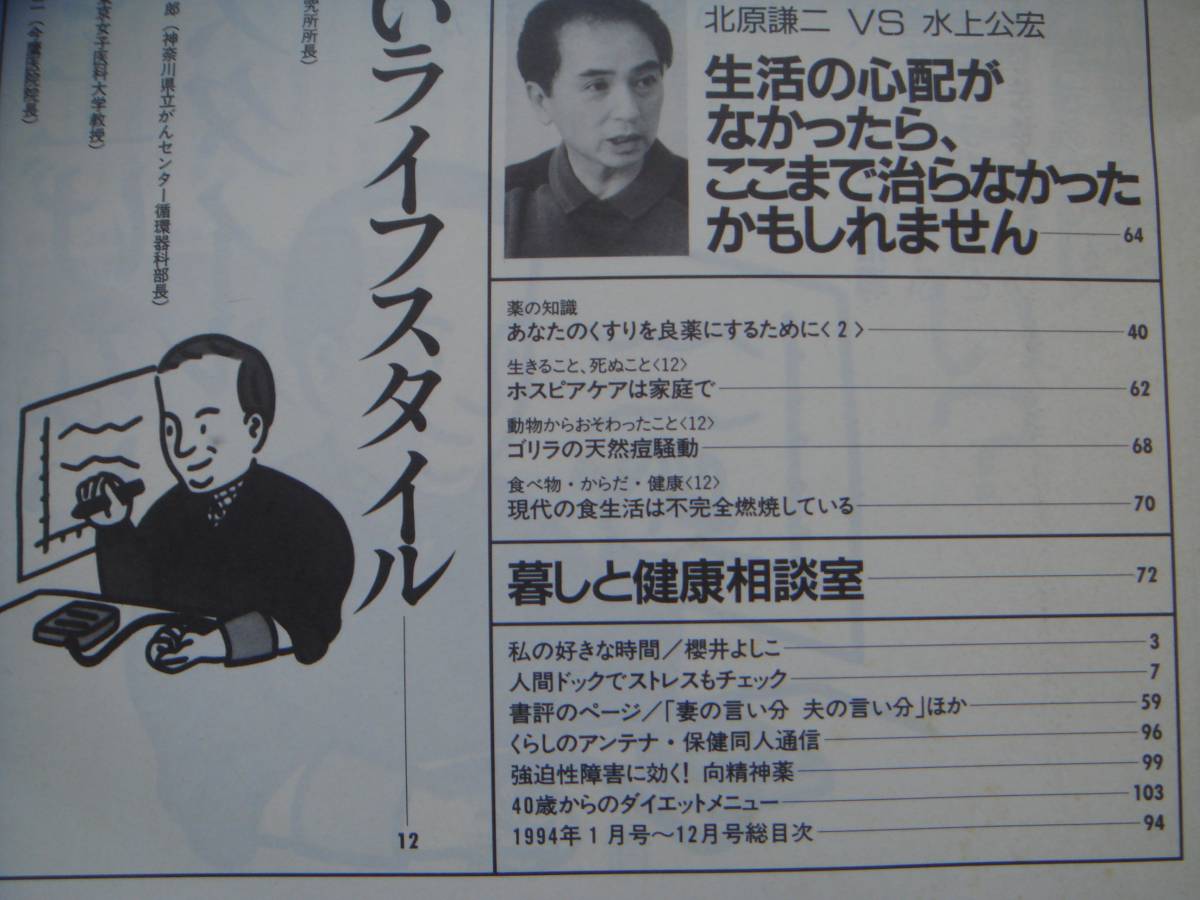 北原謙二 VS 水上公宏
生活の心配が
なかったら、
ここまで治らなかった
かもしれません 64
薬の知識
あなたのくすりを良薬にするために〈2〉 40
生きること、死ぬこと〈12〉
ホスピアケアは家庭で 62
動物からおそわったこと〈12〉
ゴリラの天然痘騒動 68
食べ物・からだ・健康〈12〉
現代の食生活は不完全燃焼している 70
暮しと健康相談室 72
私の好きな時間／櫻井よしこ 3
人間ドックでストレスもチェック 7
書評のページ／「妻の言い分 夫の言い分」ほか 59
くらしのアンテナ・保健同人通信 96
強迫性障害に効く! 向精神薬 99
40歳からのダイエットメニュー 103
1994年1月号〜12月号総目次 94
いライフスタイル 12
究所所長）
郎（神奈川県立がんセンター循環器科部長）
京女子医科大学教授）
二（今 医院院長）